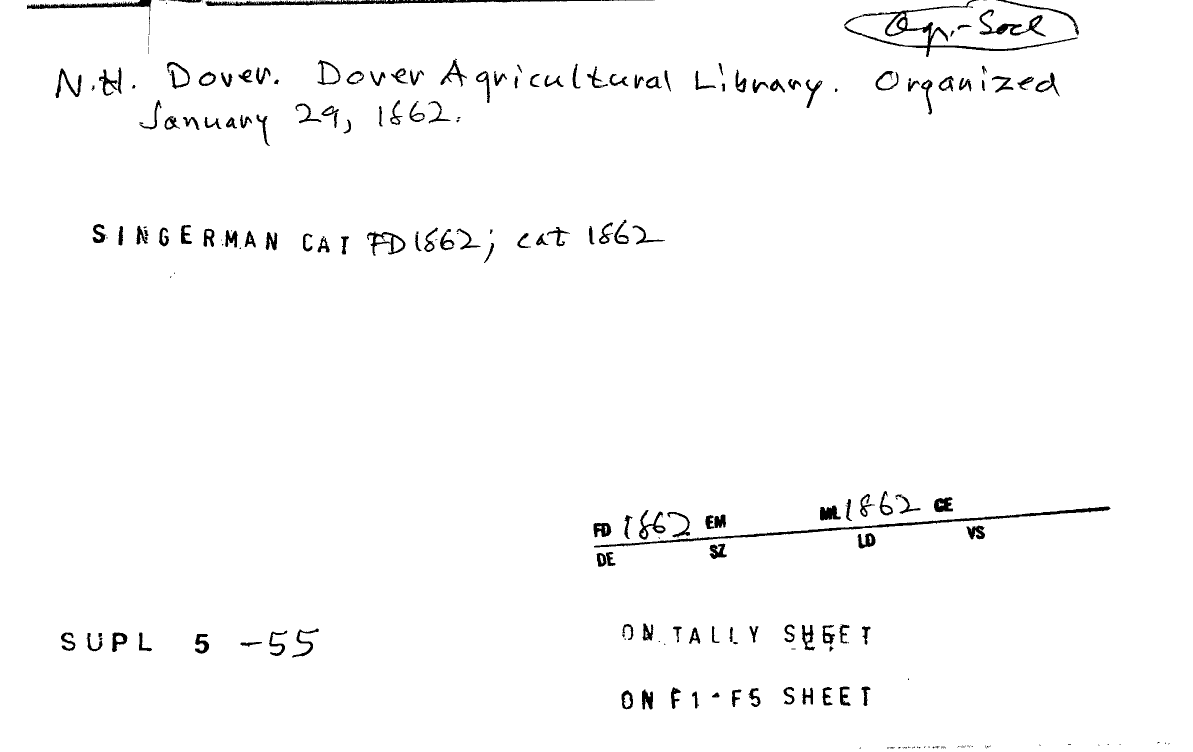 Agr.-Socl
N.H. Dover. Dover Agricultural Library. Organized
January 29, 1862.
SINGERMAN CAT FD 1862; cat 1862
FD 1862 EM ML 1862 CE
DE SZ LD VS
SUPL 5 -55
ON TALLY SHEET
ON F1-F5 SHEET